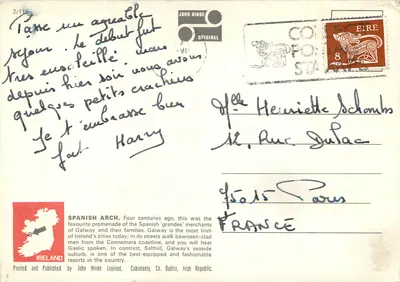 2/118
Passe un agréable
séjour. Le début fut
très ensoleillé mais
depuis hier soir nous avons
quelques petits crachins
Je t'embrasse bien
fort Harry
JOHN HINDE
ORIGINAL
VII
EIRE
8
Mlle Henriette Schombs
12, Rue Dulac
75015 Paris
FRANCE
IRELAND
SPANISH ARCH. Four centuries ago, this was the
favourite promenade of the Spanish 'grandee' merchants
of Galway and their families. Galway is the most Irish
of Ireland's cities today; in its streets walk bawneen-clad
men from the Connemara coastline, and you will hear
Gaelic spoken. In contrast, Salthill, Galway's seaside
suburb, is one of the best-equipped and fashionable
resorts in the country.
Printed and Published by John Hinde Limited, Cabinteely, Co. Dublin, Irish Republic.